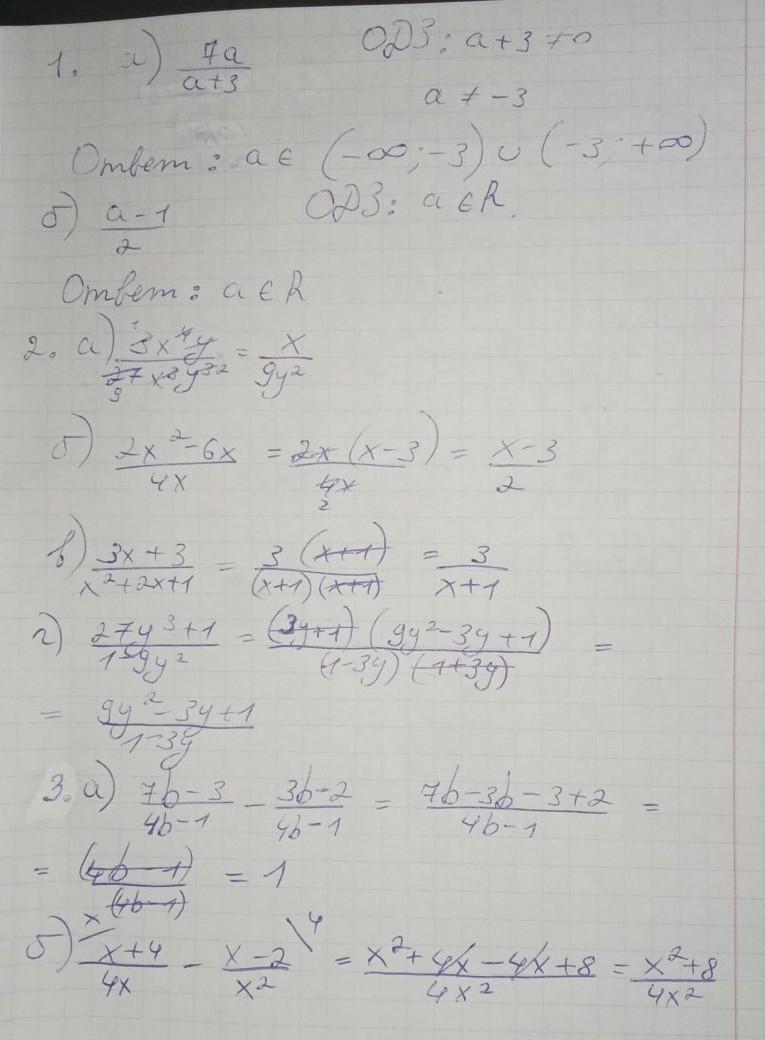 1. а) 7a/(a+3) ОДЗ: a+3≠0
a ≠ -3
Ответ: a∈ (-∞;-3) ∪ (-3; +∞)
б) (a-1)/2 ОДЗ: a∈R.
Ответ: a∈R
2. а) 3x⁴y/27x³y³ = x/9y²
б) (2x²-6x)/4x = 2x(x-3)/4x = (x-3)/2
в) (3x+3)/(x²+2x+1) = 3(x+1)/(x+1)(x+1) = 3/(x+1)
г) (27y³+1)/(1-9y²) = (3y+1)(9y²-3y+1)/(1-3y)(1+3y) =
= (9y²-3y+1)/(1-3y)
3. а) (7b-3)/(4b-1) - (3b-2)/(4b-1) = (7b-3b-3+2)/(4b-1) =
= (4b-1)/(4b-1) = 1
б) (x+4)/4x - (x-2)/x² = (x²+4x-4x+8)/4x² = (x²+8)/4x²